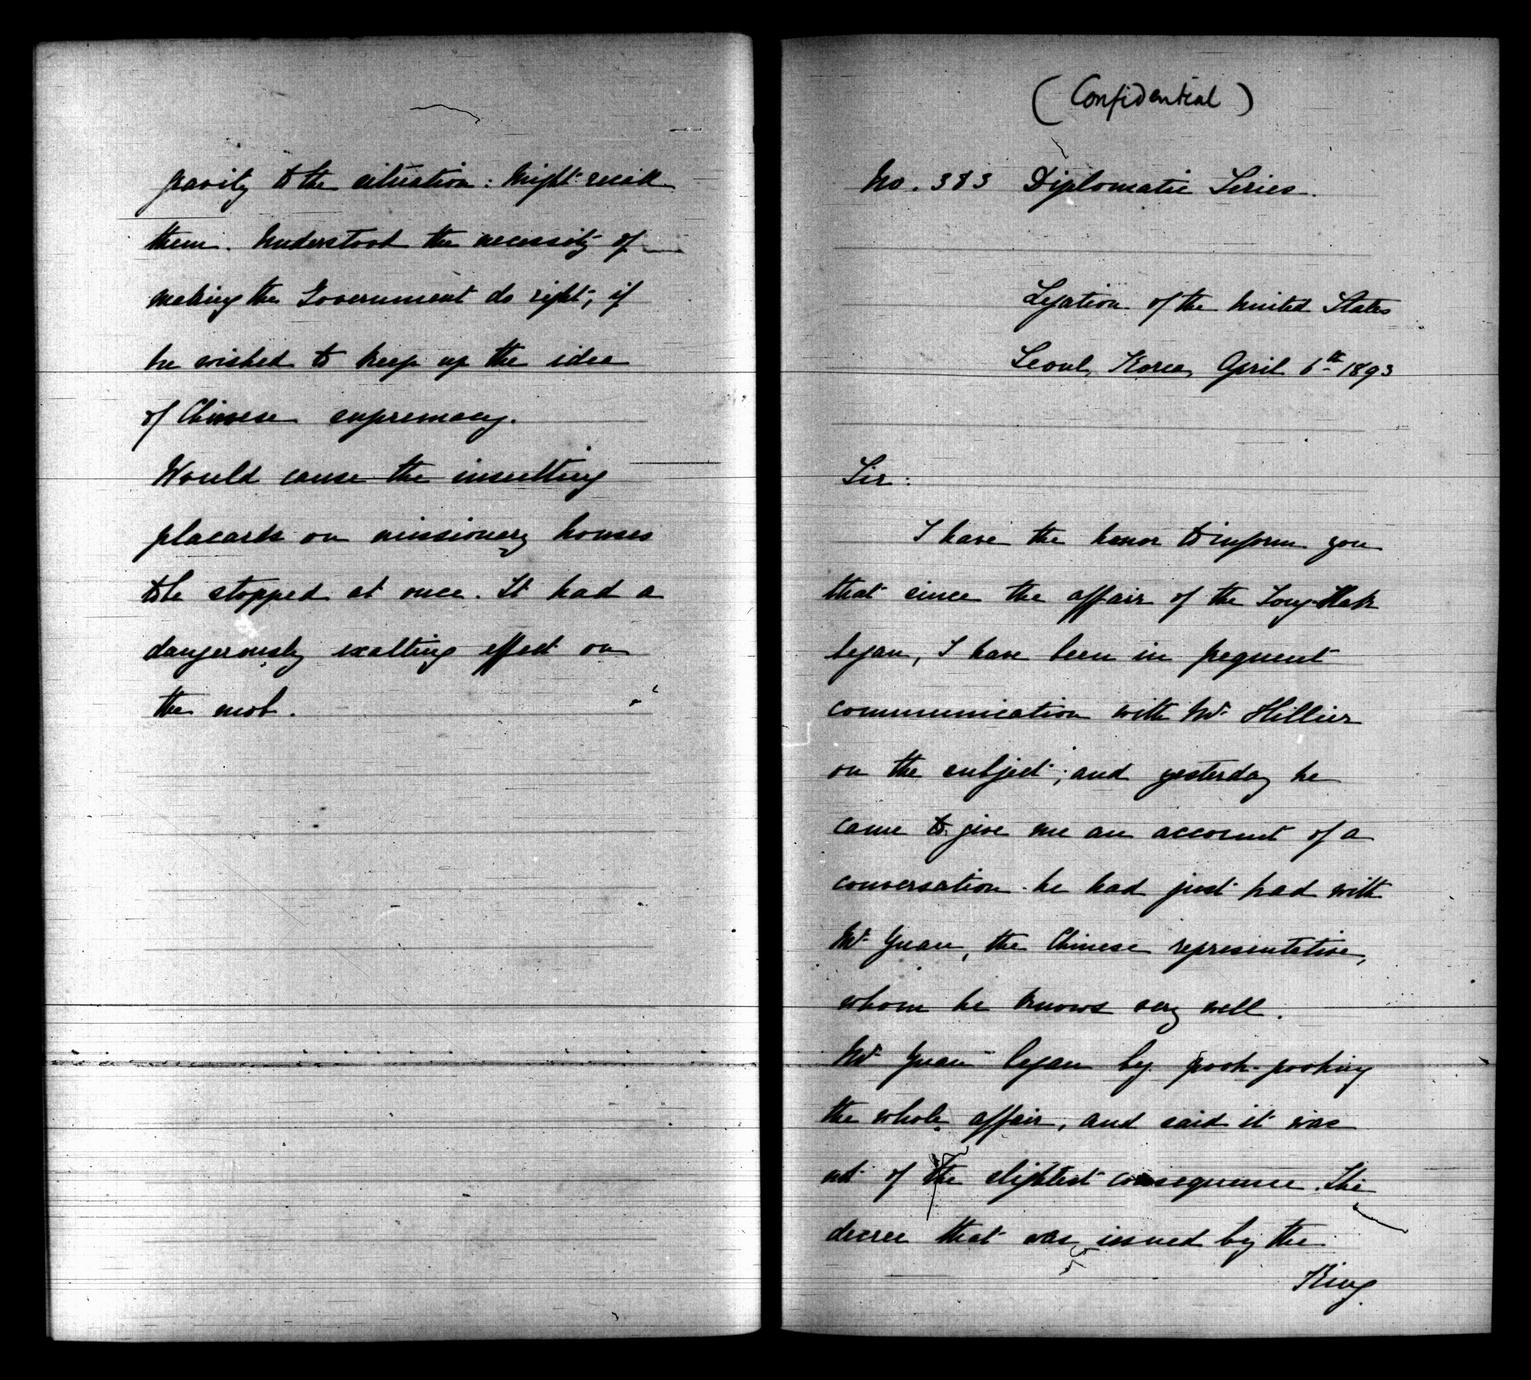 gravity to the situation: Might
them. Understood the necessity of
making the Government do right, if
he wished to keep up the idea
of Chinese supremacy.
Would cause the insulting
placards on missionary houses
to be stopped at once. It had a
dangerously exalting effect on
the mob.
(Confidential)
No. 383 Diplomatic Series.
Legation of the United States
Seoul, Korea, April 6th 1893
Sir:
I have the honor to inform you
that since the affair of the Tong Hak
began, I have been in frequent
communication with Mr. Hillier
on the subject; and yesterday he
came to give me an account of a
conversation he had just had with
Mr. Yuan, the Chinese representative,
whom he knows very well.
Mr. Yuan began by pooh-poohing
the whole affair, and said it was
not of the slightest consequence. The
decree that was issued by the
King